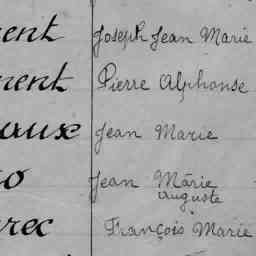 ent Joseph Jean Marie
nent Pierre Alphonse
aux Jean Marie
o Jean Marie
Auguste
rec François Marie